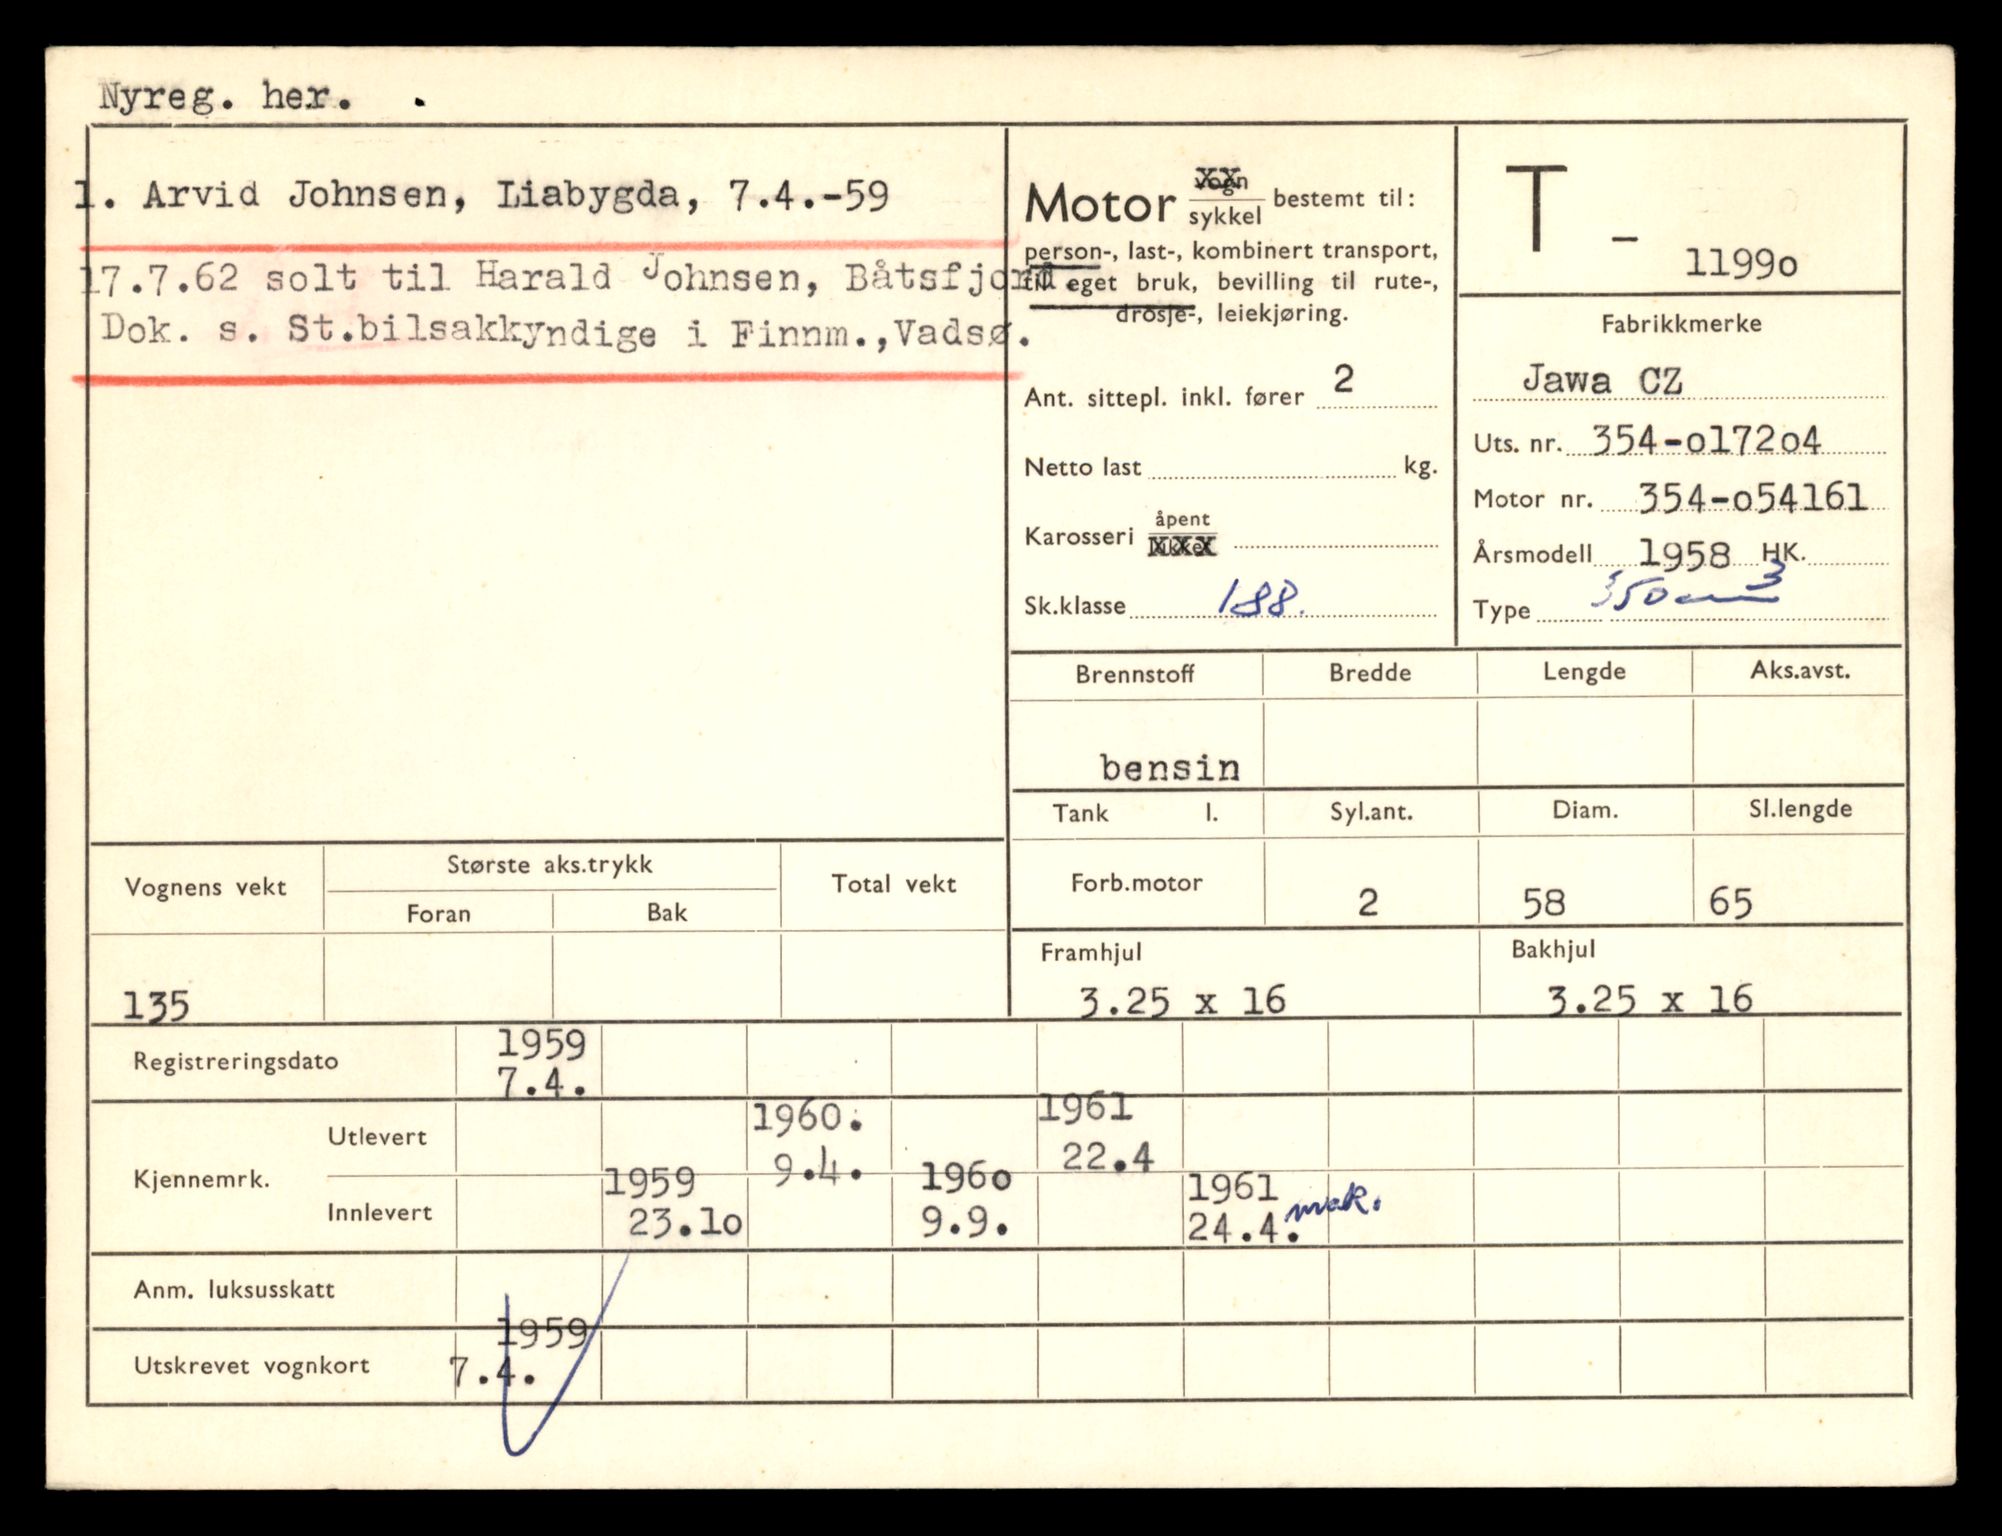 Nyreg. her.
1. Arvid Johnsen, Liabygda, 7.4.-59
17.7.62 solt til Harald Johnsen, Båtsfjord.
Dok. s. St.bilsakkyndige i Finnm.,Vadsø.
Motor vogn sykkel bestemt til:
person-, last-, kombinert transport,
til eget bruk, bevilling til rute-,
drosje-, leiekjøring.
Ant. sittepl. inkl. fører 2
Netto last kg.
Karosseri åpent lukket
Sk.klasse 188.
T - 1199o
Fabrikkmerke
Jawa CZ
Uts. nr. 354-o172o4
Motor nr. 354-o54161
Årsmodell 1958 HK.
Type 350 cm3
Brennstoff Bredde Lengde Aks.avst.
bensin
Tank l. Syl.ant. Diam. Sl.lengde
Forb.motor 2 58 65
Framhjul Bakhjul
3.25 x 16 3.25 x 16
Vognens vekt Største aks.trykk Total vekt
Foran Bak
135
Registreringsdato 1959
7.4.
Kjennemrk.
Utlevert 1960. 1961
9.4. 22.4
Innlevert 1959 196o 1961
23.1o 9.9. 24.4.
Anm. luksusskatt
Utskrevet vognkort 1959
7.4.